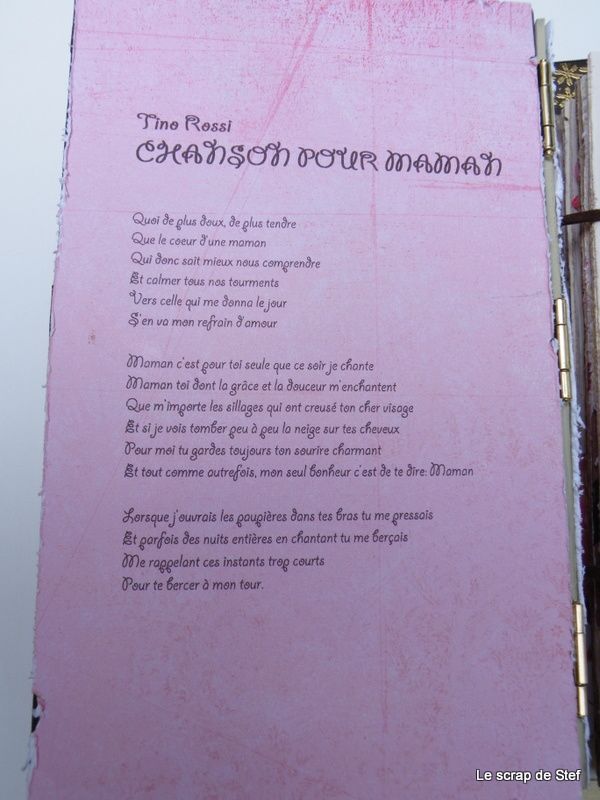 Tino Rossi
CHANSON POUR MAMAN
Quoi de plus doux, de plus tendre
Que le coeur d'une maman
Qui donc sait mieux nous comprendre
Et calmer tous nos tourments
Vers celle qui me donna le jour
S'en va mon refrain d'amour
Maman c'est pour toi seule que ce soir je chante
Maman toi dont la grâce et la douceur m'enchantent
Que m'importe les sillages qui ont creusé ton cher visage
Et si je vois tomber peu à peu la neige sur tes cheveux
Pour moi tu gardes toujours ton sourire charmant
Et tout comme autrefois, mon seul bonheur c'est de te dire: Maman
Lorsque j'ouvrais les paupières dans tes bras tu me pressais
Et parfois des nuits entières en chantant tu me berçais
Me rappelant ces instants trop courts
Pour te bercer à mon tour.
Le scrap de Stef